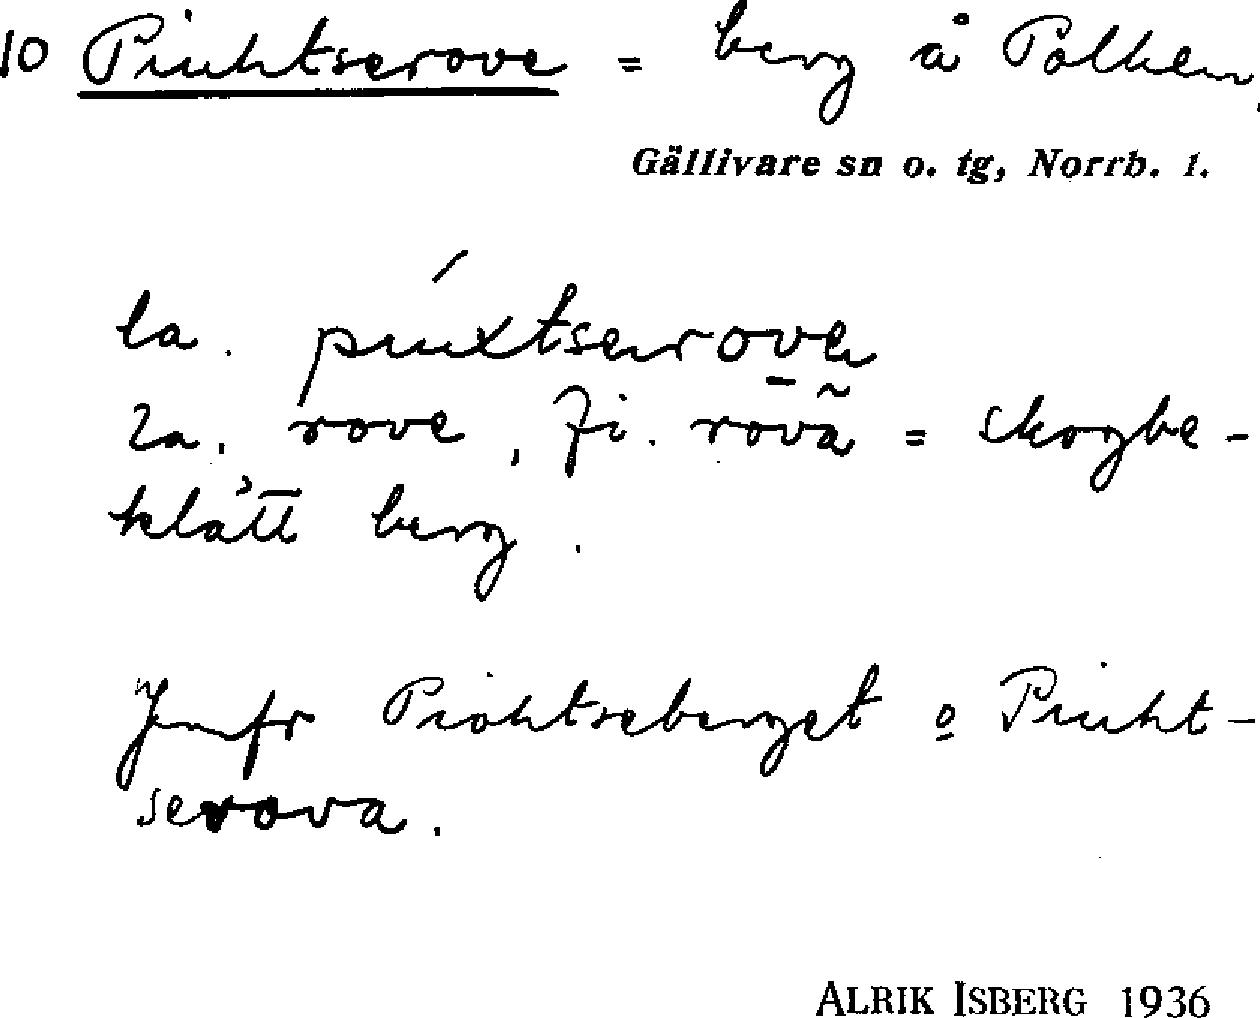 10 Piuhtserove = berg å Polken,
Gällivare sn o. tg, Norrb. l.
la. píuxtserove
la. rove, fi. rova = skogbe-
klätt berg.
Jmfr Piohtseberget o Piuht-
serova.
ALRIK ISBERG 1936